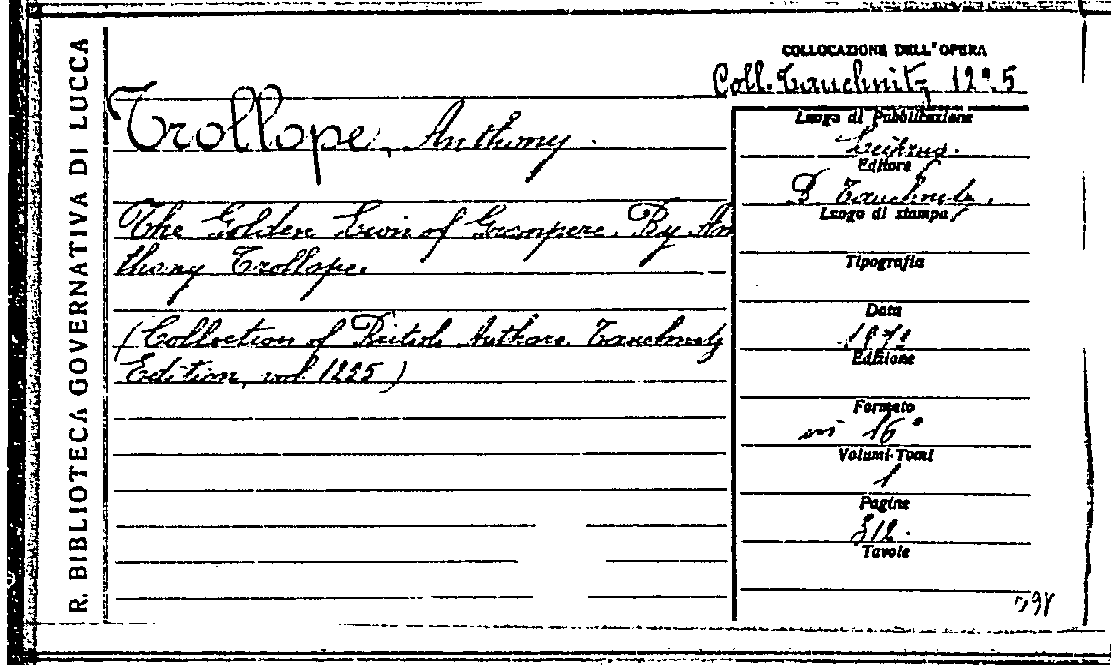 R. BIBLIOTECA GOVERNATIVA DI LUCCA
COLLOCAZIONE DELL'OPERA
Coll. Tauchnitz 1225
Trollope, Anthony.
The Golden Lion of Granpere. By An
thony Trollope.
(Collection of British Authors. Tauchnitz
Edition, vol. 1225)
Luogo di Pubblicazione
Leipzig.
Editore
B. Tauchnitz.
Luogo di stampa
Tipografia
Data
1872
Edizione
Formato
in 16°
Volumi-Tomi
1
Pagine
312.
Tavole